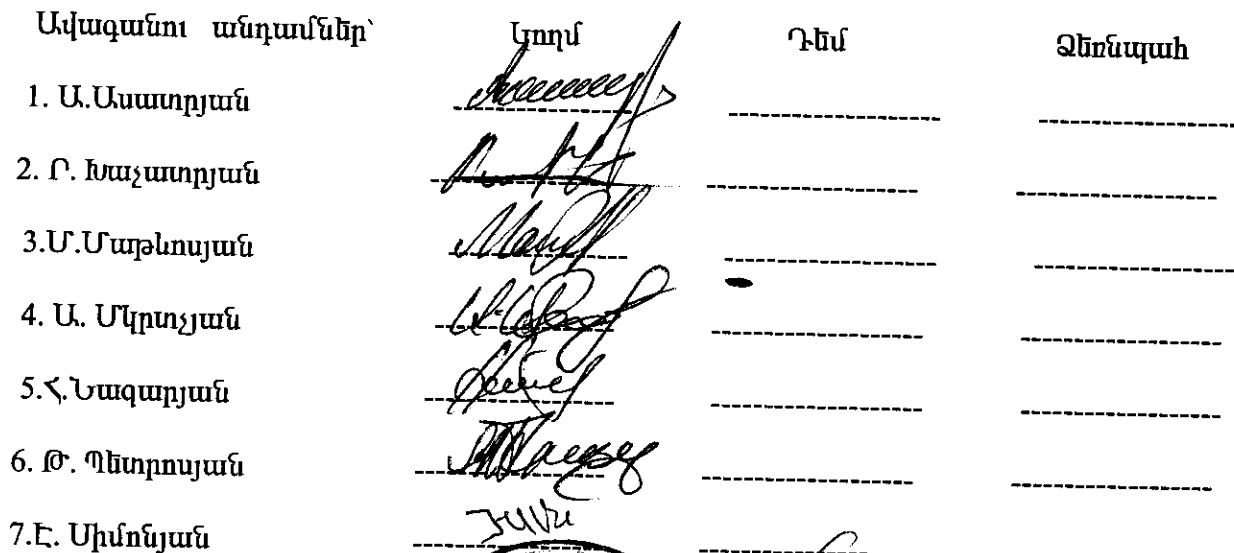 Ավագանու անդամներ՝ Կողմ Դեմ Ձեռնպահ
1. Ա.Ասատրյան
2. Ր. Խաչատրյան
3.Մ.Մաթևոսյան
4. Ա. Մկրտչյան
5.Հ.Նազարյան
6. Թ. Պետրոսյան
7.Է. Սիմոնյան